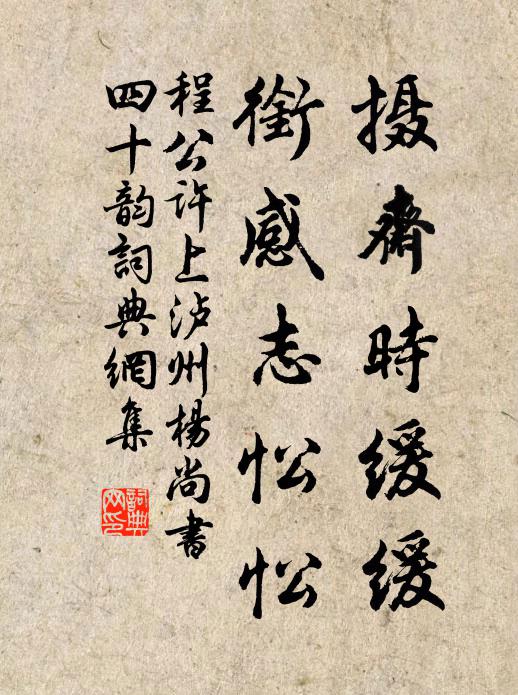 摄齋時缓缓
銜感志忪忪
程公许上泸州楊尚書
四十韵詞典網集
詞典网印